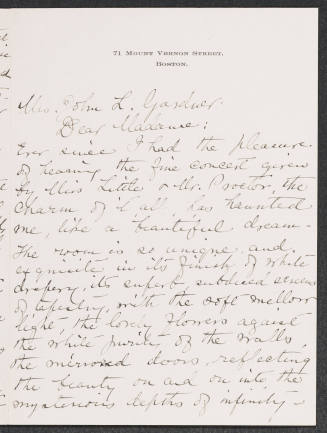 71 Mount Vernon Street,
Boston.
Mrs. John L. Gardner.
Dear Madame:
Ever since I had the pleasure
of hearing the fine concert given
by Miss Little & Mr. Proctor, the
charm of it all, has haunted
me, like a beautiful dream.
The room is so unique and
exquisite in its finish of white
drapery, its superb, subdued
of tapestry, with the soft mellow
light, the lovely flowers against
the white purity of the walls,
the mirrored doors, reflecting
the beauty on and on into the
mysterious depths of infinity -